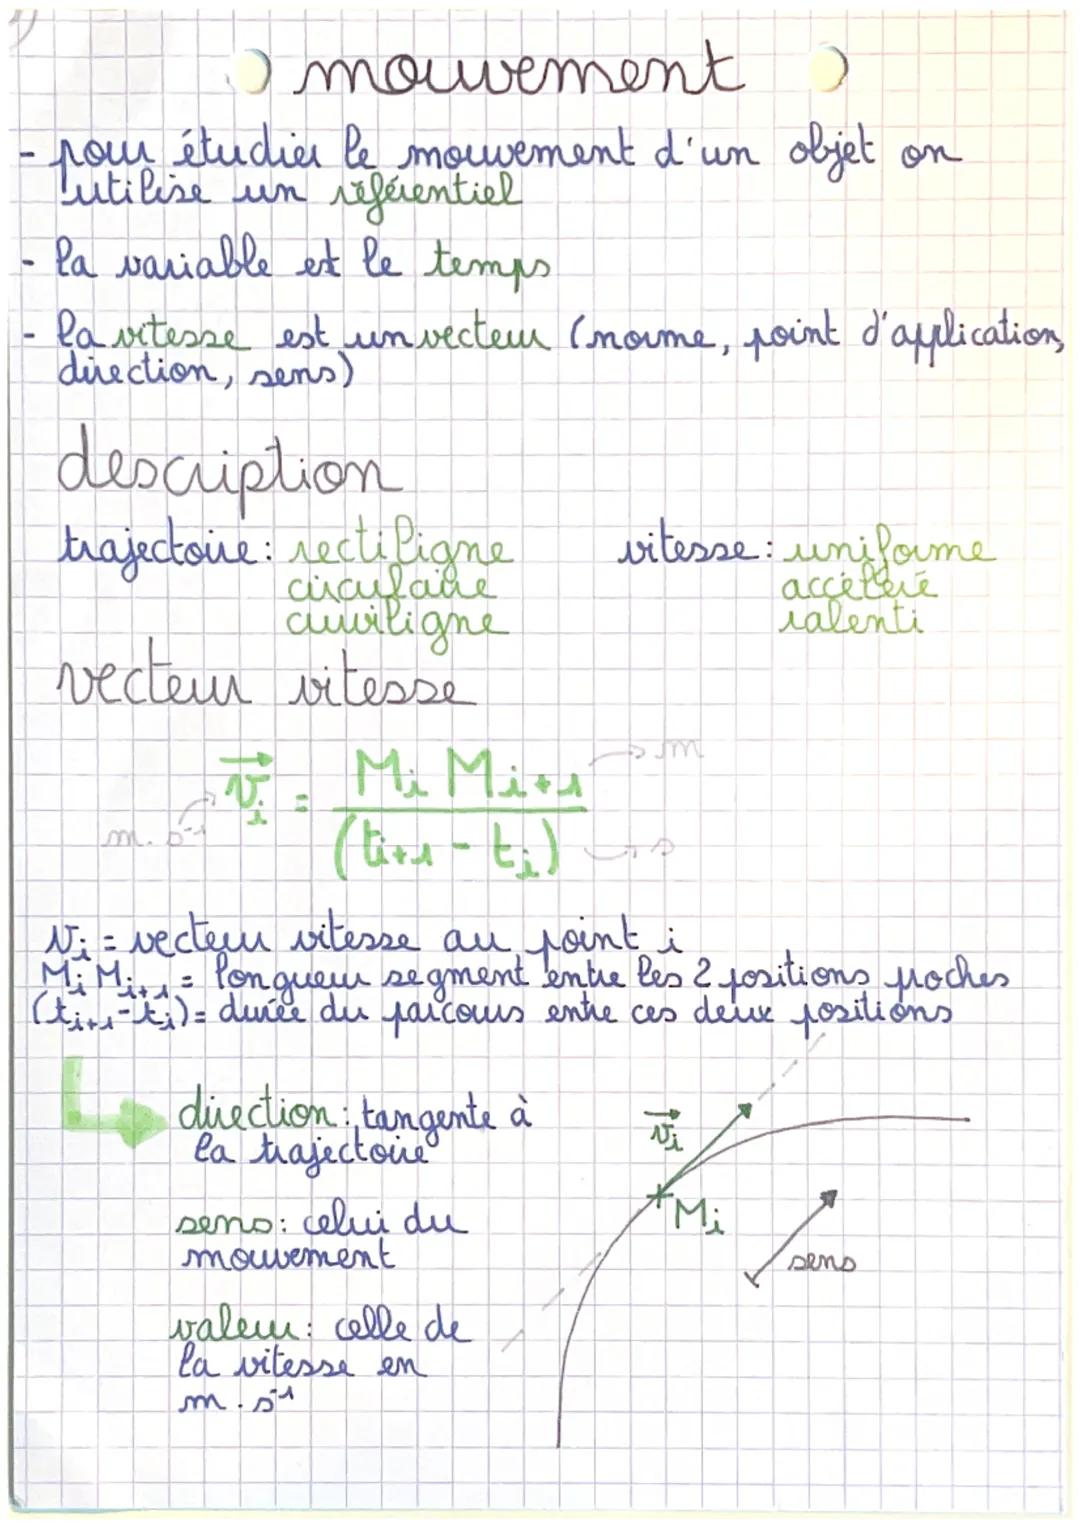 mouvement
- pour étudier le mouvement d'un objet on
utilise un référentiel
- la variable est le temps
- la vitesse est un vecteur (norme, point d'application,
direction, sens)
description
trajectoire: rectiligne vitesse: uniforme
circulaire accéléré
curviligne ralenti
vecteur vitesse
m.s⁻¹ v⃗ᵢ = MᵢMᵢ₊₁ → m
(tᵢ₊₁ - tᵢ) → s
vᵢ = vecteur vitesse au point i
MᵢMᵢ₊₁ = longueur segment entre les 2 positions proches
(tᵢ₊₁-tᵢ) = durée du parcours entre ces deux positions
direction: tangente à
la trajectoire
v⃗ᵢ
Mᵢ
sens: celui du
mouvement
sens
valeur: celle de
la vitesse en
m.s⁻¹